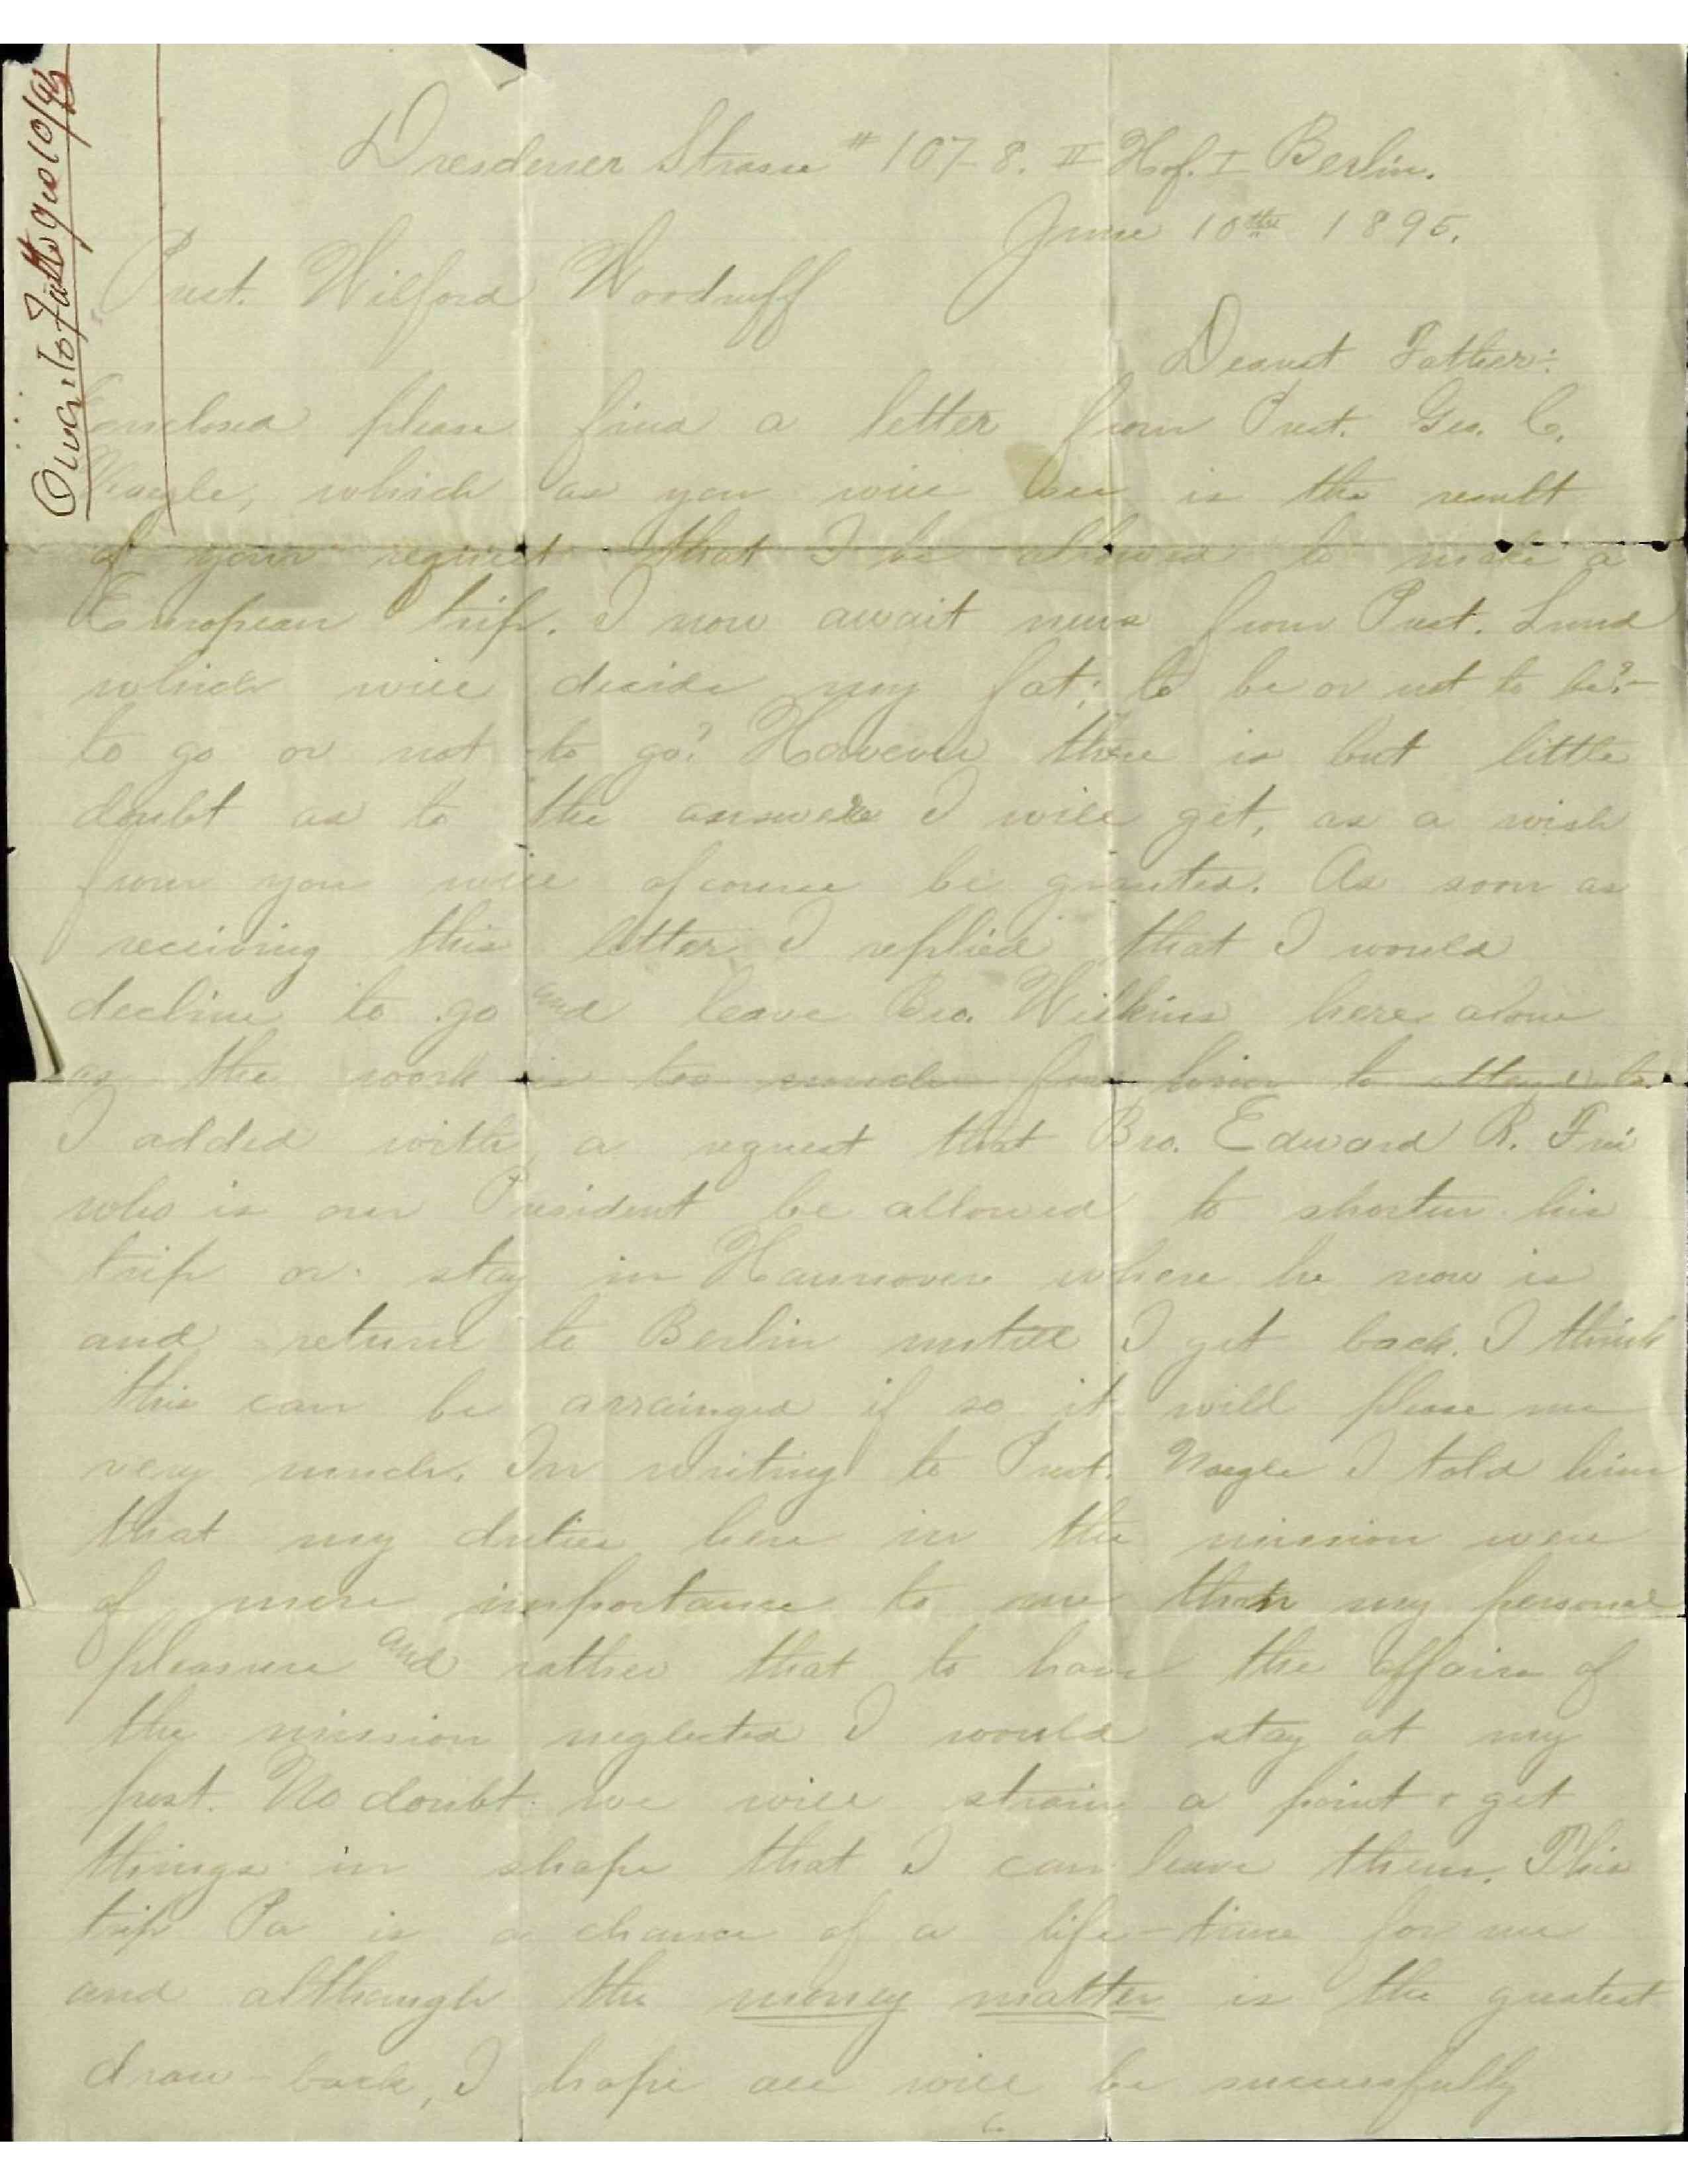 Dresdener Strasse #107-8. II Hof. I Berlin.
June 10th 1895.
Prest. Wilford Woodruff
Dearest Father:
Enclosed please find a letter from Prest. Geo. C.
Naegle, which as you will see is the result
of your request that I be allowed to make a
European trip. I now await news from Prest. Lund
which will decide my fat; to be or not to be?-
to go or not to go? However there is but little
doubt as to the answer I will get, as a wish
from you will ofcourse be granted. As soon as
receiving this letter I replied that I would
decline to go and leave Bro. Wilkins here alone
as the work is too much for him to attend to.
I added with a request that Bro. Edward R. Frei
who is our President be allowed to shorten his
trip or stay in Hannover where he now is
and return to Berlin untill I get back. I think
this can be arrainged if so it will please me
very much. In writing to Prest. Naegle I told him
that my duties here in the mission were
of more importance to me than my personal
pleasure and rather that to have the affairs of
the mission neglected I would stay at my
post. No doubt we will strain a point & get
things in shape that I can leave them. This
trip Pa is a chance of a life-time for me
and although the money matter is the greatest
draw-back, I hope all will be successfully